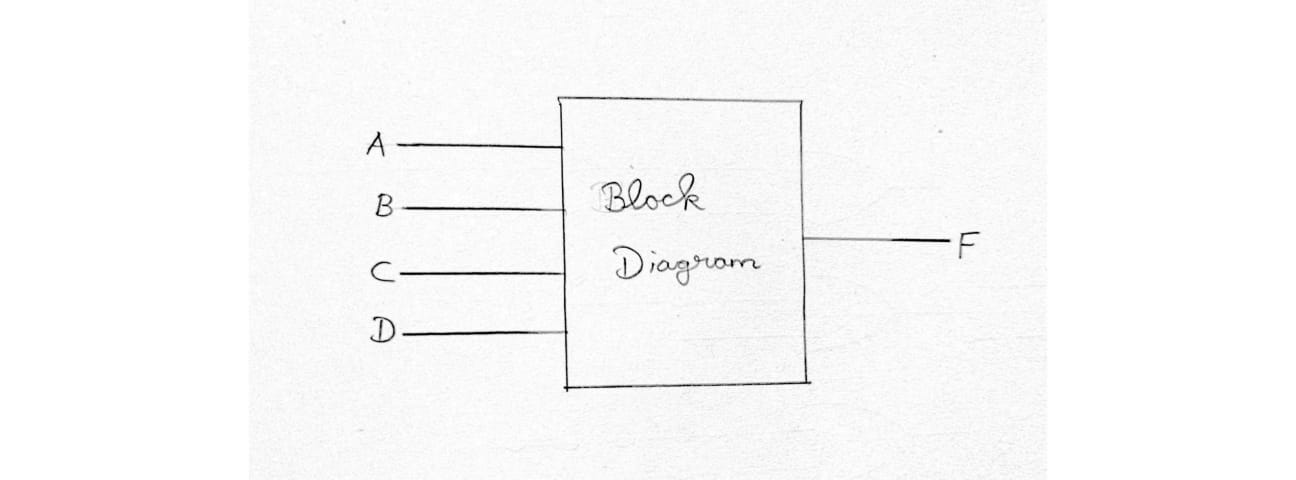 A
B
C
D
Block
Diagram
F